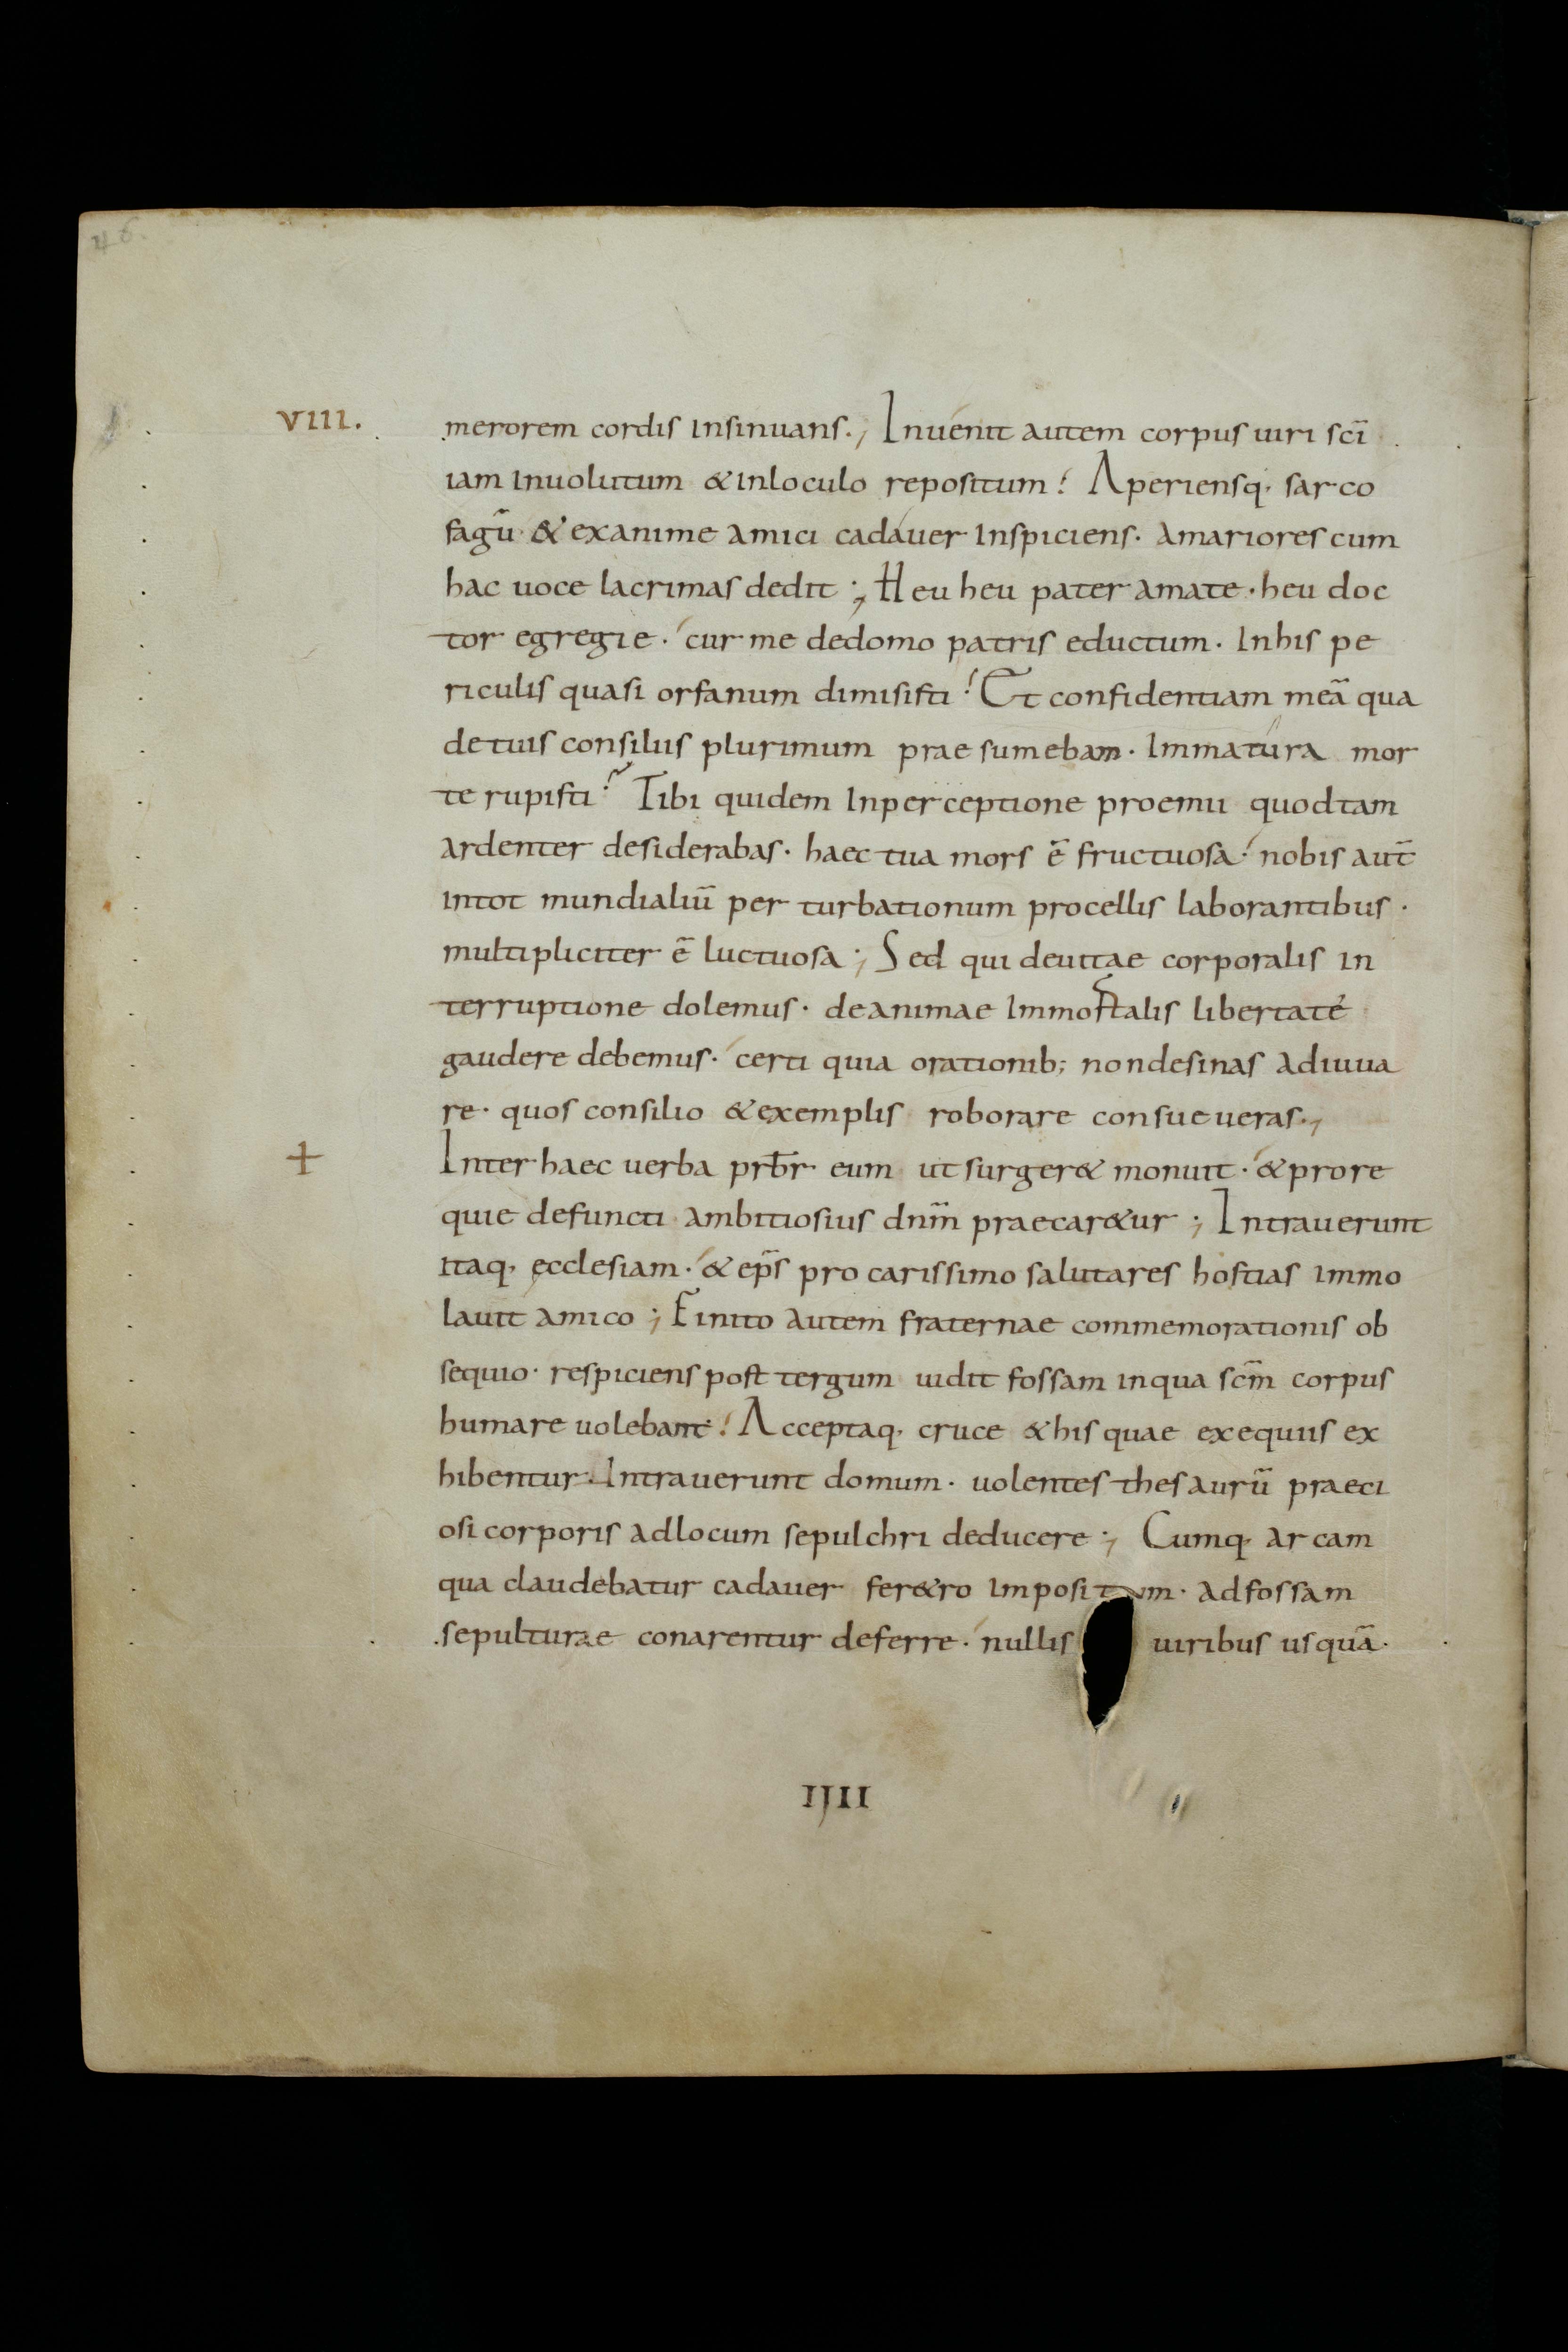 46.
VIII. merorem cordis insinuans·, Inuenit autem corpus uiri sci̅
iam inuolutum & inloculo repositum! Aperiensq· sarco
fagu̅ & exanime amici cadauer inspiciens· amariores cum
hac uoce lacrimas dedit; Heu heu pater amate· heu doc
tor egregie· cur me dedomo patris eductum· inhis pe
riculis quasi orfanum dimisisti! Et confidentiam mea̅ qua
detuis consiliis plurimum prae sumebam· immatura mor
te rupisti? Tibi quidem inperceptione proemii quodtam
ardenter desiderabas· haec tua mors e̅ fructuosa· nobis aut̅
intot mundialiu̅ per turbationum procellis laborantibus·
multipliciter e̅ luctuosa; Sed qui deuitae corporalis in
terruptione dolemus· deanimae immortalis libertate
gaudere debemus· certi quia orationib; nondesinas adiuua
re· quos consilio & exemplis roborare consueueras·,
+ Inter haec uerba prb̅r eum ut surger& monuit· & prore
quie defuncti ambitiosius dnm̅ praecar&ur; Intrauerunt
itaq· ecclesiam· & ep̅s pro carissimo salutares hostias immo
lauit amico; Finito autem fraternae commemorationis ob
sequio· respiciens post tergum uidit fossam inqua scm̅ corpus
humare uolebant! Acceptaq· cruce & his quae exequiis ex
hibentur· Intrauerunt domum· uolentes thesauru̅ praeci
osi corporis adlocum sepulchri deducere; Cumq· arcam
qua claudebatur cadauer fer&ro impositum· adfossam
sepulturae conarentur deferre· nullis uiribus usqua̅·
IIII